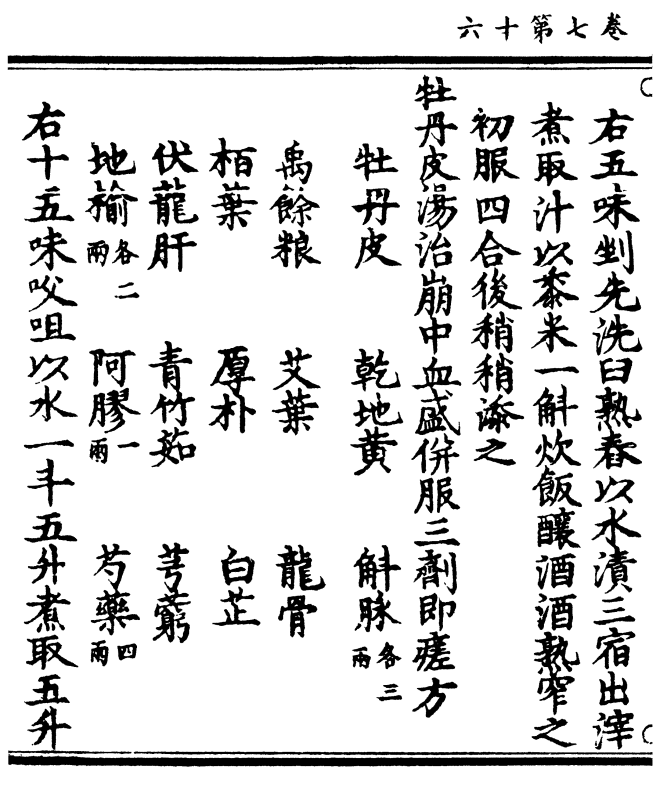 卷七第十六
右五味剉先洗臼熟舂以水漬三宿出滓
煮取汁以黍米一斛炊飯釀酒酒熟窄之
初服四合後稍稍添之
牡丹皮湯治崩中血盛併服三劑即瘥方
牡丹皮 乾地黄 斛脉各三兩
禹餘粮 艾葉 龍骨
栢葉 厚朴 白芷
伏龍肝 青竹茹 芎藭
地榆各二兩 阿膠一兩 芍藥四兩
右十五味㕮咀以水一斗五升煮取五升